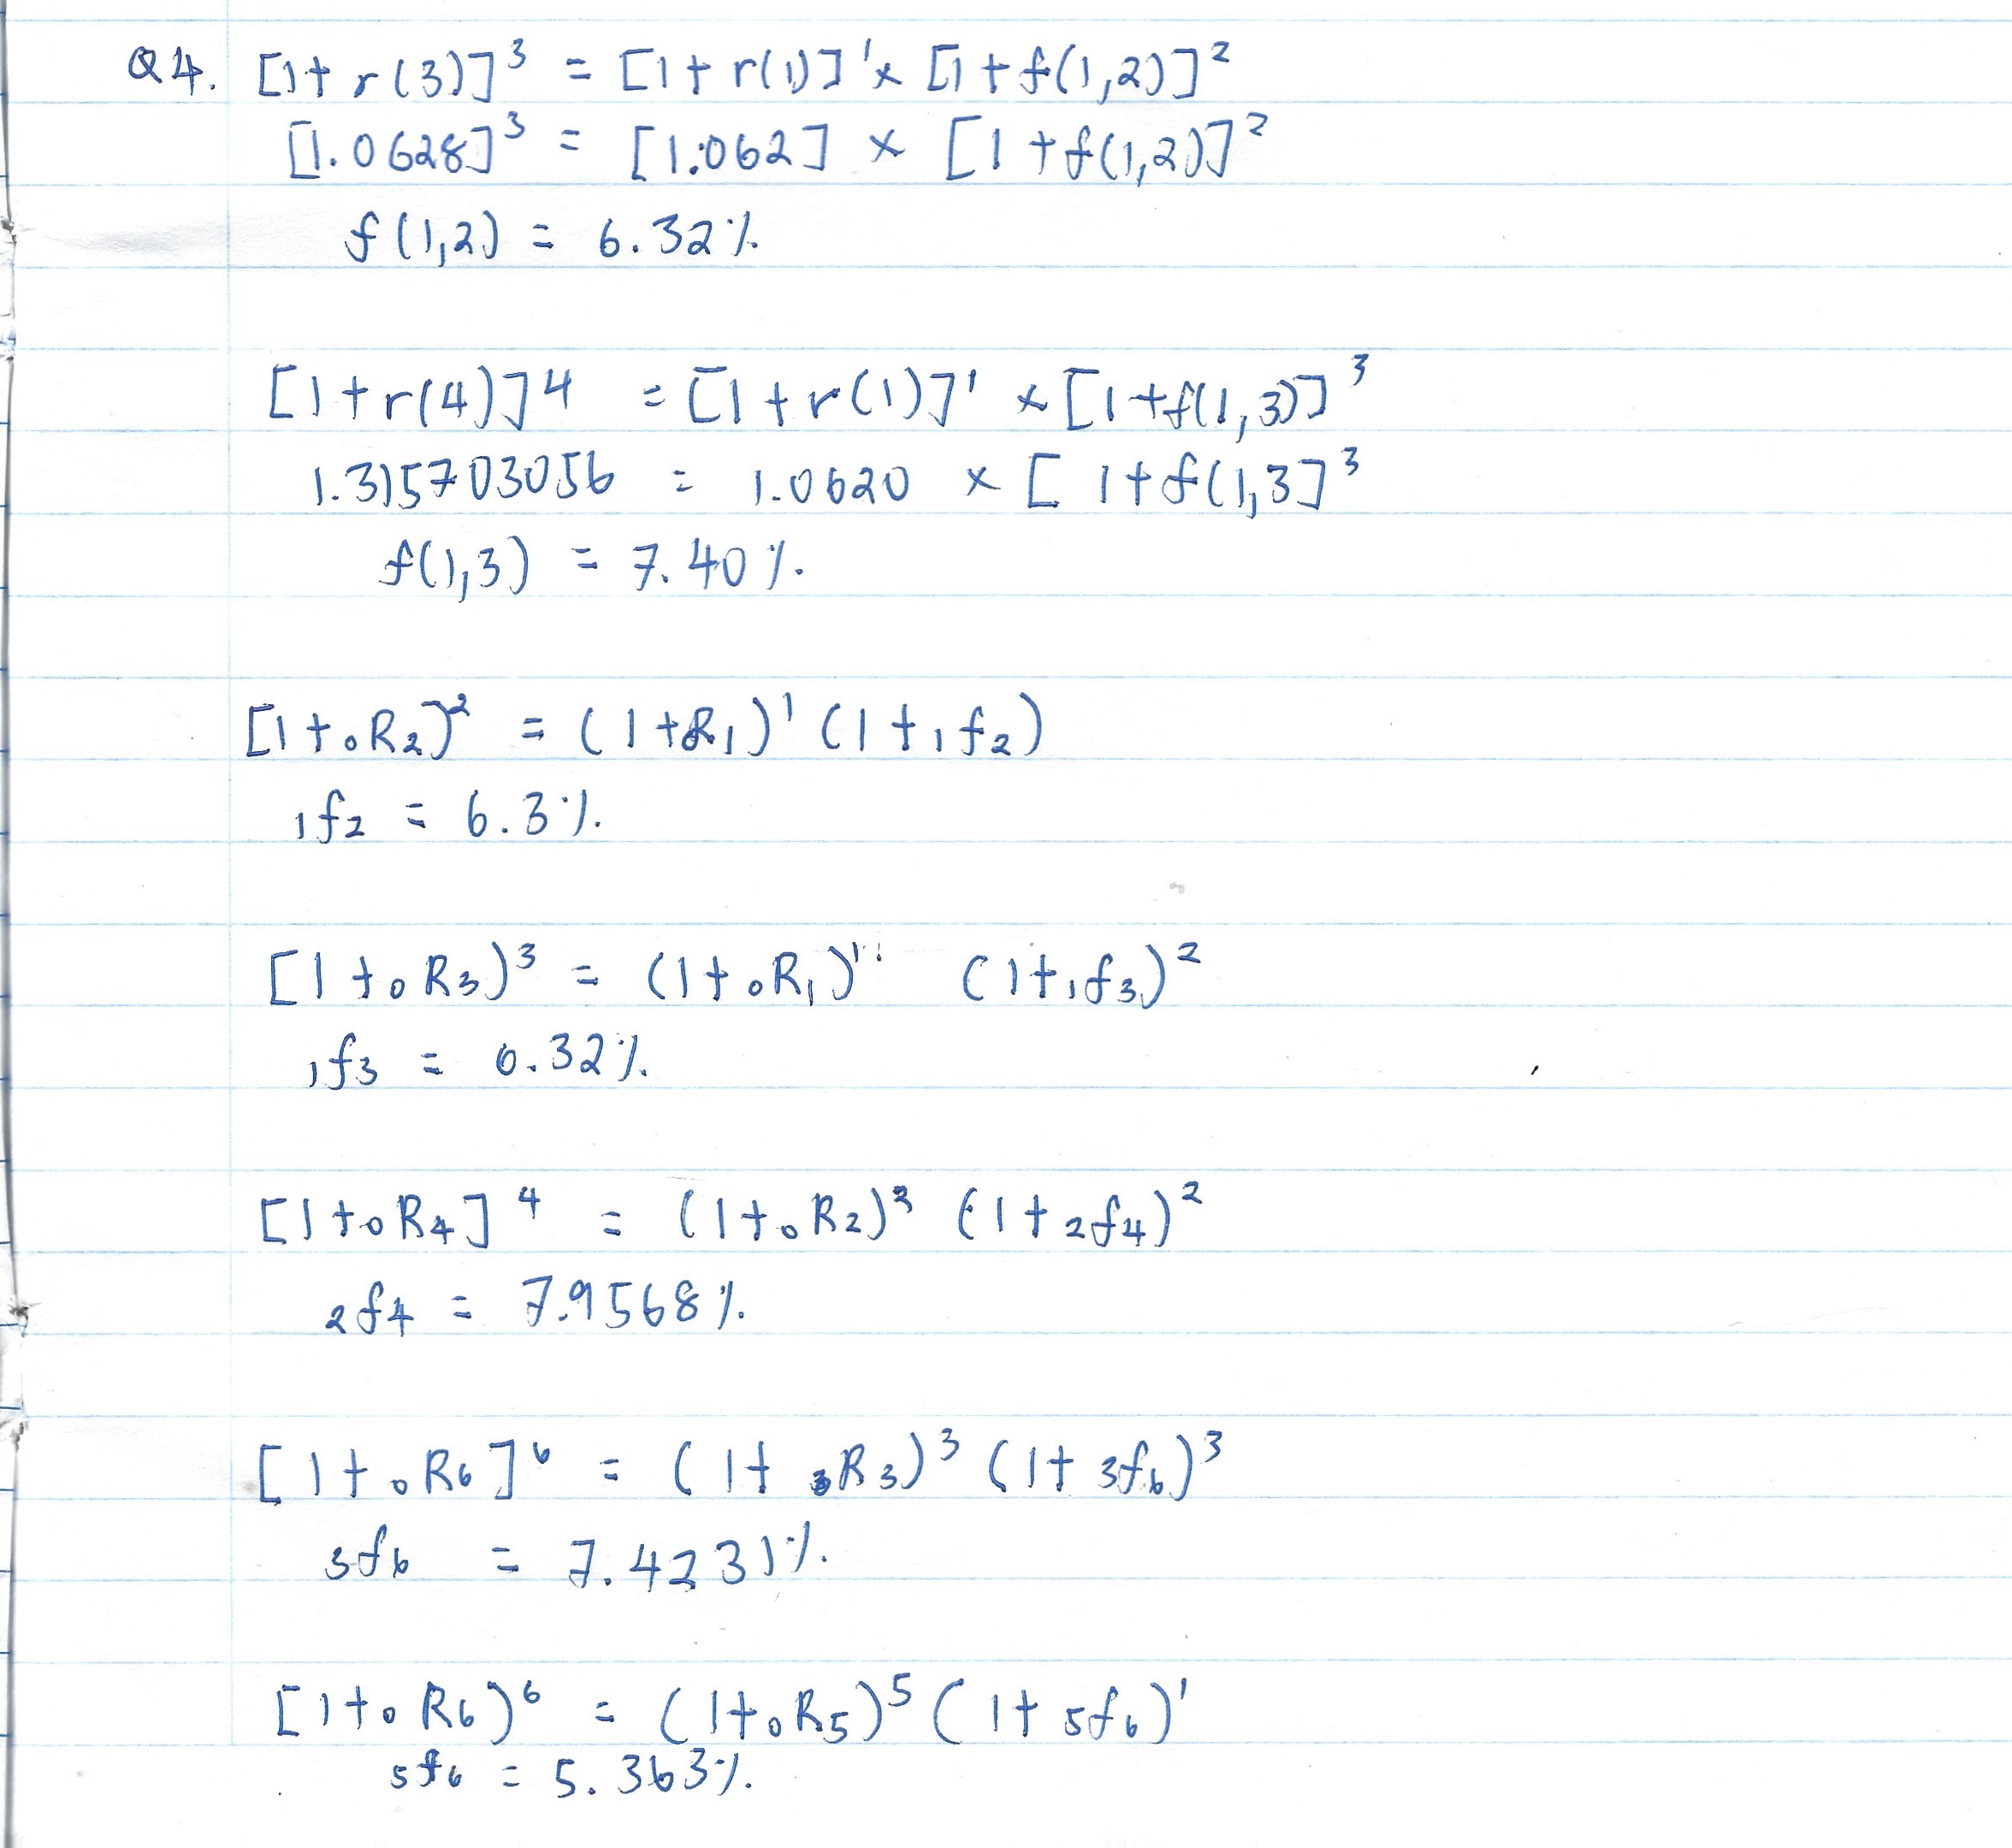 Q4. [1+ r(3)]³ = [1+ r(1)]¹ x [1 + f(1,2)]²
[1.0628]³ = [1.062] x [1 + f(1,2)]²
f(1,2) = 6.32%
[1+r(4)]4 = [1+r(1)]¹ x [1+f(1,3)]³
1.315703056 = 1.0620 x [ 1+f(1,3]³
f(1,3) = 7.40%.
[1+₀R₂)² = (1+R₁)¹ (1+₁f₂)
₁f₂ = 6.3%.
[1+₀R₃)³ = (1+₀R₁)¹ (1+₁f₃)²
₁f₃ = 6.32%.
[1+₀R₄]⁴ = (1+₀R₂)² (1+₂f₄)²
₂f₄ = 7.9568%.
[1+₀R₆]⁶ = (1+ ₀R₃)³ (1+ ₃f₆)³
₃f₆ = 7.4231%.
[1+₀R₆)⁶ = (1+₀R₅)⁵ (1+ ₅f₆)¹
₅f₆ = 5.363%.